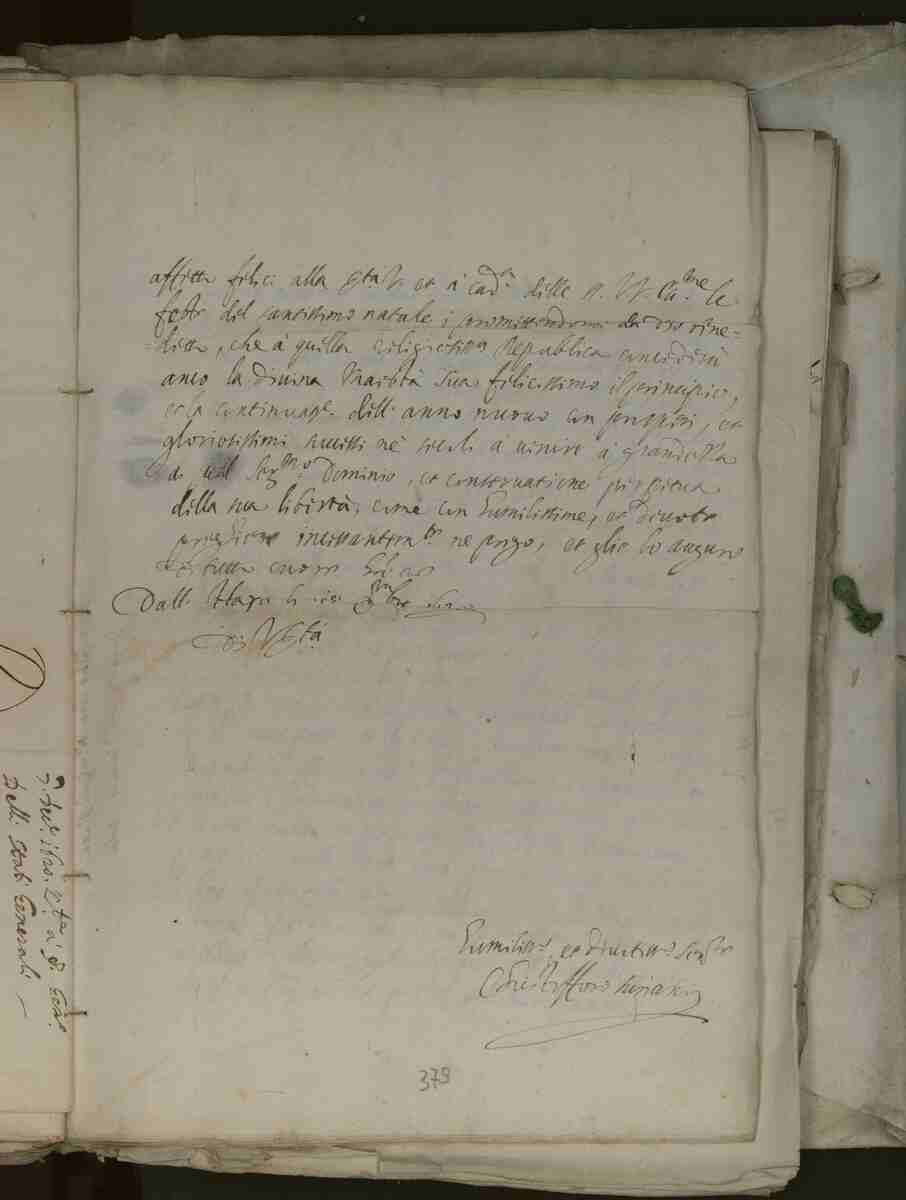 affetto felici alla S.tà V. et à cad.a delle S. VV. Ill.me le
feste del santissimo natale; promettendomi
che à quella Religiosiss.a Republica concederà
anco la Divina Maestà sua felicissimo il principio,
et la continuaz.e dell'anno nuovo con prosperi, et
gloriosissimi successi nè secoli à venire à grandezza
Ser.mo Dominio, et conservatione perpetua
della sua libertà; come con humilissime, et divote
preghiere incessantem.te ne prego, et glie lo auguro
tutto cuore
Dall'Haya li
Di V. S.tà
Humiliss.o et divotiss.o Ser.re
Christofforo Suriano
379
à
Delli Stati Generali